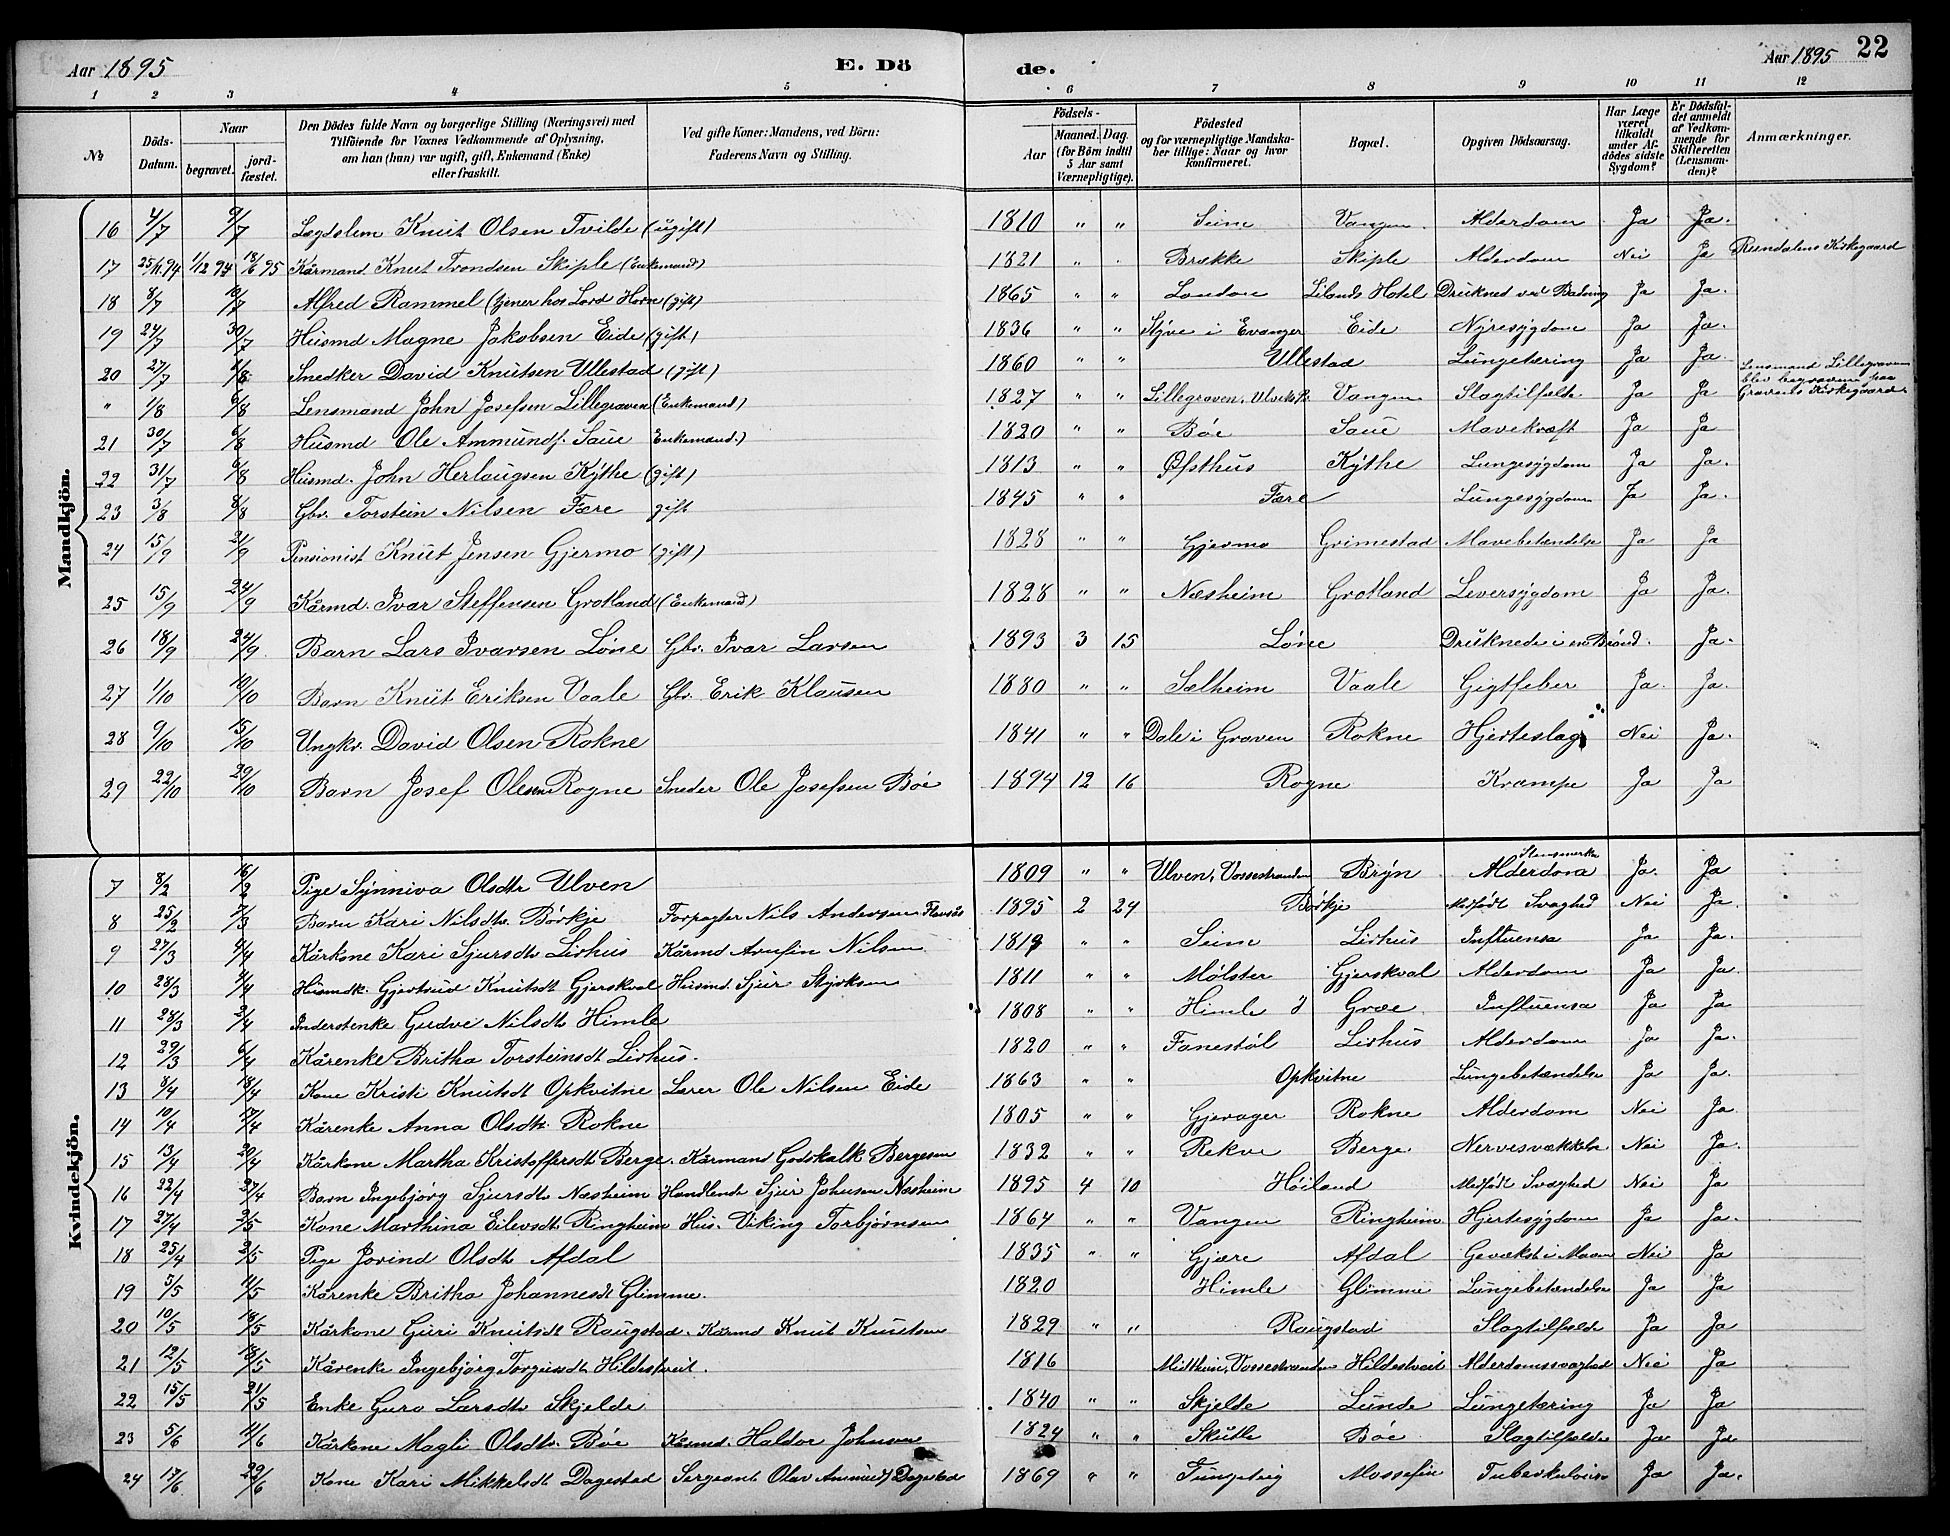 Aar 1895 E. Dö de. Aar 1895 22
1 2 3 4 5 6 7 8 9 10 11 12
№ Döds-Datum. Naar begravet. jord-fæstet. Den Dödes fulde Navn og borgerlige Stilling (Næringsvei) med Tilföiende for Voxnes Vedkommende af Oplysning, om han (hun) var ugift, gift, Enkemand (Enke) eller fraskilt. Ved gifte Koner: Mandens, ved Börn: Faderens Navn og Stilling. Födsels- Aar Maaned. Dag. (for Börn indtil 5 Aar samt Værnepligtige). Födested og for værnepligtige Mandska-ber tillige: Naar og hvor konfirmeret. Bopæl. Opgiven Dödsaarsag. Har Læge været tilkaldt under Af-dödes sidste Sygdom? Er Dödsfal-det anmeldt af Vedkom-mende for Skifteretten (Lensman-den)? Anmærkninger.
Mandkjön.
16 4/7 9/7 Lægdslem Knut Olsen Tvilde (ugift) 1810 " " Seim Vangen Alderdom Ja Ja.
17 25/11 94 1/12 94 18/6 95 Kårmand Knut Trondsen Skiple (Enkemand) 1821 " " Brekke Skiple Alderdom Nei Ja Rundalens Kirkegaard
18 8/7 10/7 Alfred Rammel (tjener hos Lord Horn (gift) 1865 " " London Lilands Hotel Drukned ved Badning Ja Ja.
19 24/7 30/7 Husmd Magne Jakobsen Eide (gift) 1836 " " Styve i Evanger Eide Nyresygdom Ja Ja.
20 27/7 1/8 Snedker David Knutsen Ullestad (gift) 1860 " " Ullestad Lungetæring Ja Ja.
" 1/8 6/8 Lensmand John Josefsen Lillegraven (Enkemand) 1827 " " Lillegraven, Ulvik Vangen Slagtilfælde Ja Ja Lensmand Lillegraven blev begraven paa Gravens Kirkegaard
21 30/7 6/8 Husmd Ole Ammundf. Saue Enkemand.) 1820 " " Bøe Saue Mavekræft Ja Ja
22 31/7 6/8 Husmd. John Herlaugsen Kythe (gift) 1813 " " Øfsthus Kythe Lungesygdom Ja Ja.
23 3/8 8/8 Gbr. Torstein Nilsen Fære gift 1845 " " Fære Lungesygdom Ja Ja.
24 15/9 21/9 Pensionist Knut Jensen Gjermo (gift) 1828 " " Gjermo Grimestad Mavebetændelse Ja Ja
25 15/9 24/9 Kårmd. Ivar Steffensen Grotland (Enkemand) 1828 " " Næsheim Grotland Leversygdom Ja Ja.
26 18/9 24/9 Barn Lars Ivarsen Løne Gbr. Ivar Larsen 1893 3 15 Løne Druknede i en Brønd. Ja.
27 1/10 10/10 Barn Knut Eriksen Vaale Gbr. Erik Klausen 1880 " " Sælheim Vaale Gigtfeber Ja. Ja.
28 9/10 15/10 Ungkr. David Olsen Rokne 1841 " " Dale i Graven Rokne Hjerteslag Nei Ja.
29 22/10 29/10 Barn Josef Olesen Rogne Sneder Ole Josefsen Bøe 1894 12 16 Rogne Krampe Ja Ja
Kvindekjön.
7 8/2 16/2 Pige Synniva Olsdtr Ulven 1809 " " Ulven, Vossestranden Bryn Alderdom Ja. Ja
8 25/2 7/3 Barn Kari Nilsdtr. Børkje Forpagter Nils Andersen 1895 2 24 Børkje Medfødt Svaghed Nei Ja.
9 27/3 4/4 Kårkone Kari Sjursdtr Lirhus Kårmd Arnfin Nilsen 1819 " " Seim Lirhus Influensa Ja Ja.
10 28/3 4/4 Husmdk. Gjertrud Knutsdt Gjerskval Husmd. Sjur Styrksen 1811 " " Mølster Gjerskval Alderdom Ja Ja.
11 28/3 2/4 Inderstenke Gudve Nilsdtr Himle 1808 " " Himle Græe Influensa Ja Ja
12 29/3 6/4 Kårenke Britha Torsteinsdt Lirhus. 1820 " " Fonestøl Lirhus Alderdom Ja Ja.
13 8/4 18/4 Kone Kristi Knutsdt Opkvitne Lærer Ole Nilsen Eide 1863 " " Opkvitne Lungebetændelse Ja Ja.
14 10/4 17/4 Kårenke Anna Olsdtr. Rokne 1805 " " Gjerager Rokne Alderdom Nei Ja.
15 13/4 20/4 Kårkone Martha Kristoffersdt Berge. Kårmand Godskalk Bergesen 1832 " " Rekve Berge Nervesvækkelse Nei Ja.
16 22/4 27/4 Barn Ingebjørg Sjursdtr Næsheim Handlende Sjur Johnsen Næsheim 1895 4 10 Høiland Medfødt Svaghed Nei Ja
17 27/4 2/5 Kone Marthina Eilevsdtr. Ringheim Hus. Viking Torbjørnsen 1864 " " Vangen Ringheim Hjertesygdom Ja Ja.
18 25/4 2/5 Pige Jorind Olsdtr Afdal 1835 " " Gjære Afdal Gevækst i Maven Nei Ja
19 5/5 11/5 Kårenke Britha Johannesdt Glimme. 1820 Himle Glimme Lungebetændelse Ja Ja
20 10/5 18/5 Kårkone Guri Knutsdt Raugstad. Kårmd Knut Knutsen 1829 " " Raugstad Slagtilfælde Ja Ja
21 12/5 18/5 Kårenke Ingebjørg Torgersdt Hildestveit. 1816 Midthun, Vossestranden Hildestveit Alderdomssvaghed Nei Ja
22 15/5 21/5 Enke Guro Larsdtr Skjelde 1840 " " Skjelde Lunde Lungetæring Ja Ja
23 5/6 11/6 Kårkone Magli Olsdtr. Bøe Kårmd. Haldor Johnsen 1824 " " Skutle Bøe Slagtilfælde Ja Ja
24 17/6 22/6 Kone Kari Mikkelsdt Dagestad Sergeant Olav Ammundf Dagestad 1869 " " Tungeteig Mossefin Tuberkulose Ja Ja.